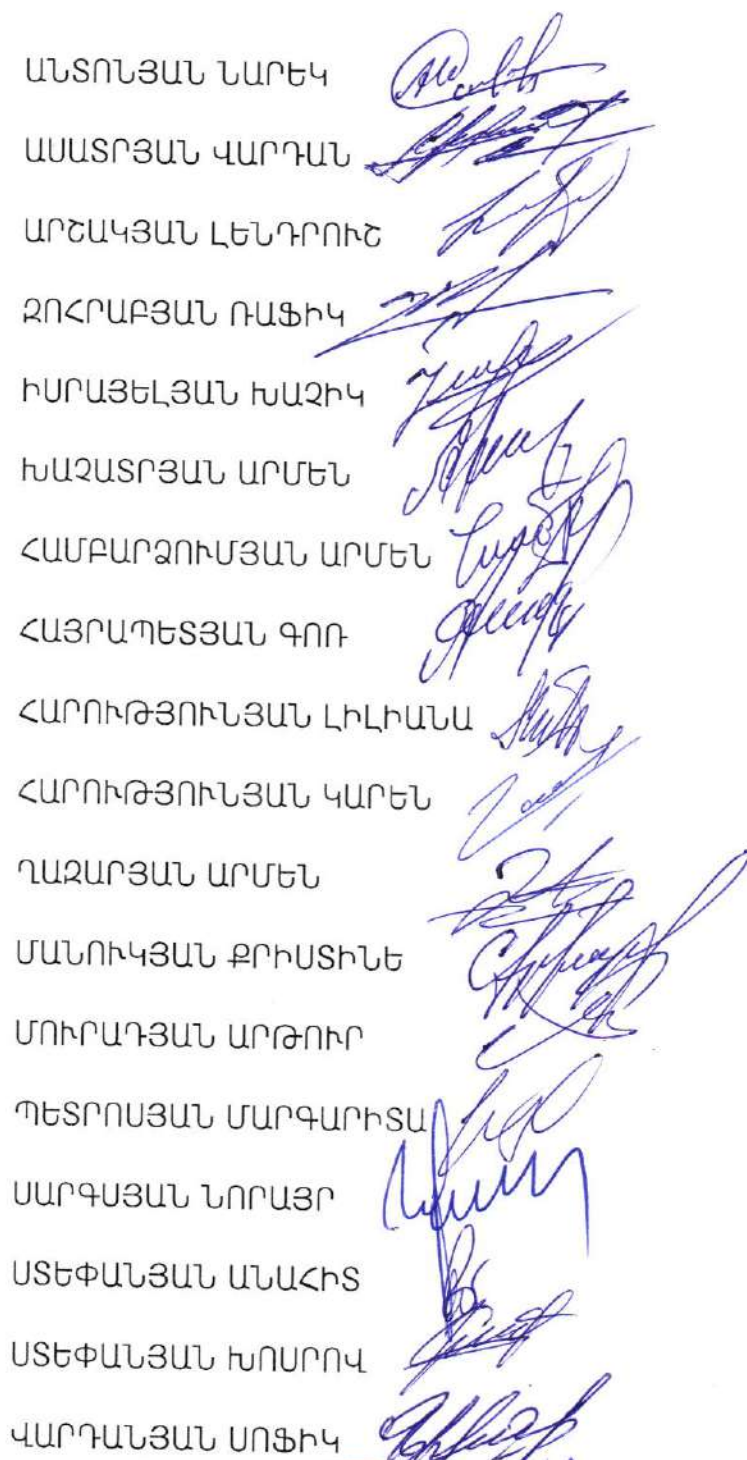 ԱՆՏՈՆՅԱՆ ՆԱՐԵԿ
ԱՍԱՏՐՅԱՆ ՎԱՐԴԱՆ
ԱՐՇԱԿՅԱՆ ԼԵՆԴՐՈՒՇ
ԶՈՀՐԱԲՅԱՆ ՌԱՖԻԿ
ԻՍՐԱՅԵԼՅԱՆ ԽԱՉԻԿ
ԽԱՉԱՏՐՅԱՆ ԱՐՄԵՆ
ՀԱՄԲԱՐՁՈՒՄՅԱՆ ԱՐՄԵՆ
ՀԱՅՐԱՊԵՏՅԱՆ ԳՈՌ
ՀԱՐՈՒԹՅՈՒՆՅԱՆ ԼԻԼԻԱՆԱ
ՀԱՐՈՒԹՅՈՒՆՅԱՆ ԿԱՐԵՆ
ՂԱԶԱՐՅԱՆ ԱՐՄԵՆ
ՄԱՆՈՒԿՅԱՆ ՔՐԻՍՏԻՆԵ
ՄՈՒՐԱԴՅԱՆ ԱՐԹՈՒՐ
ՊԵՏՐՈՍՅԱՆ ՄԱՐԳԱՐԻՏԱ
ՍԱՐԳՍՅԱՆ ՆՈՐԱՅՐ
ՍՏԵՓԱՆՅԱՆ ԱՆԱՀԻՏ
ՍՏԵՓԱՆՅԱՆ ԽՈՍՐՈՎ
ՎԱՐԴԱՆՅԱՆ ՍՈՖԻԿ